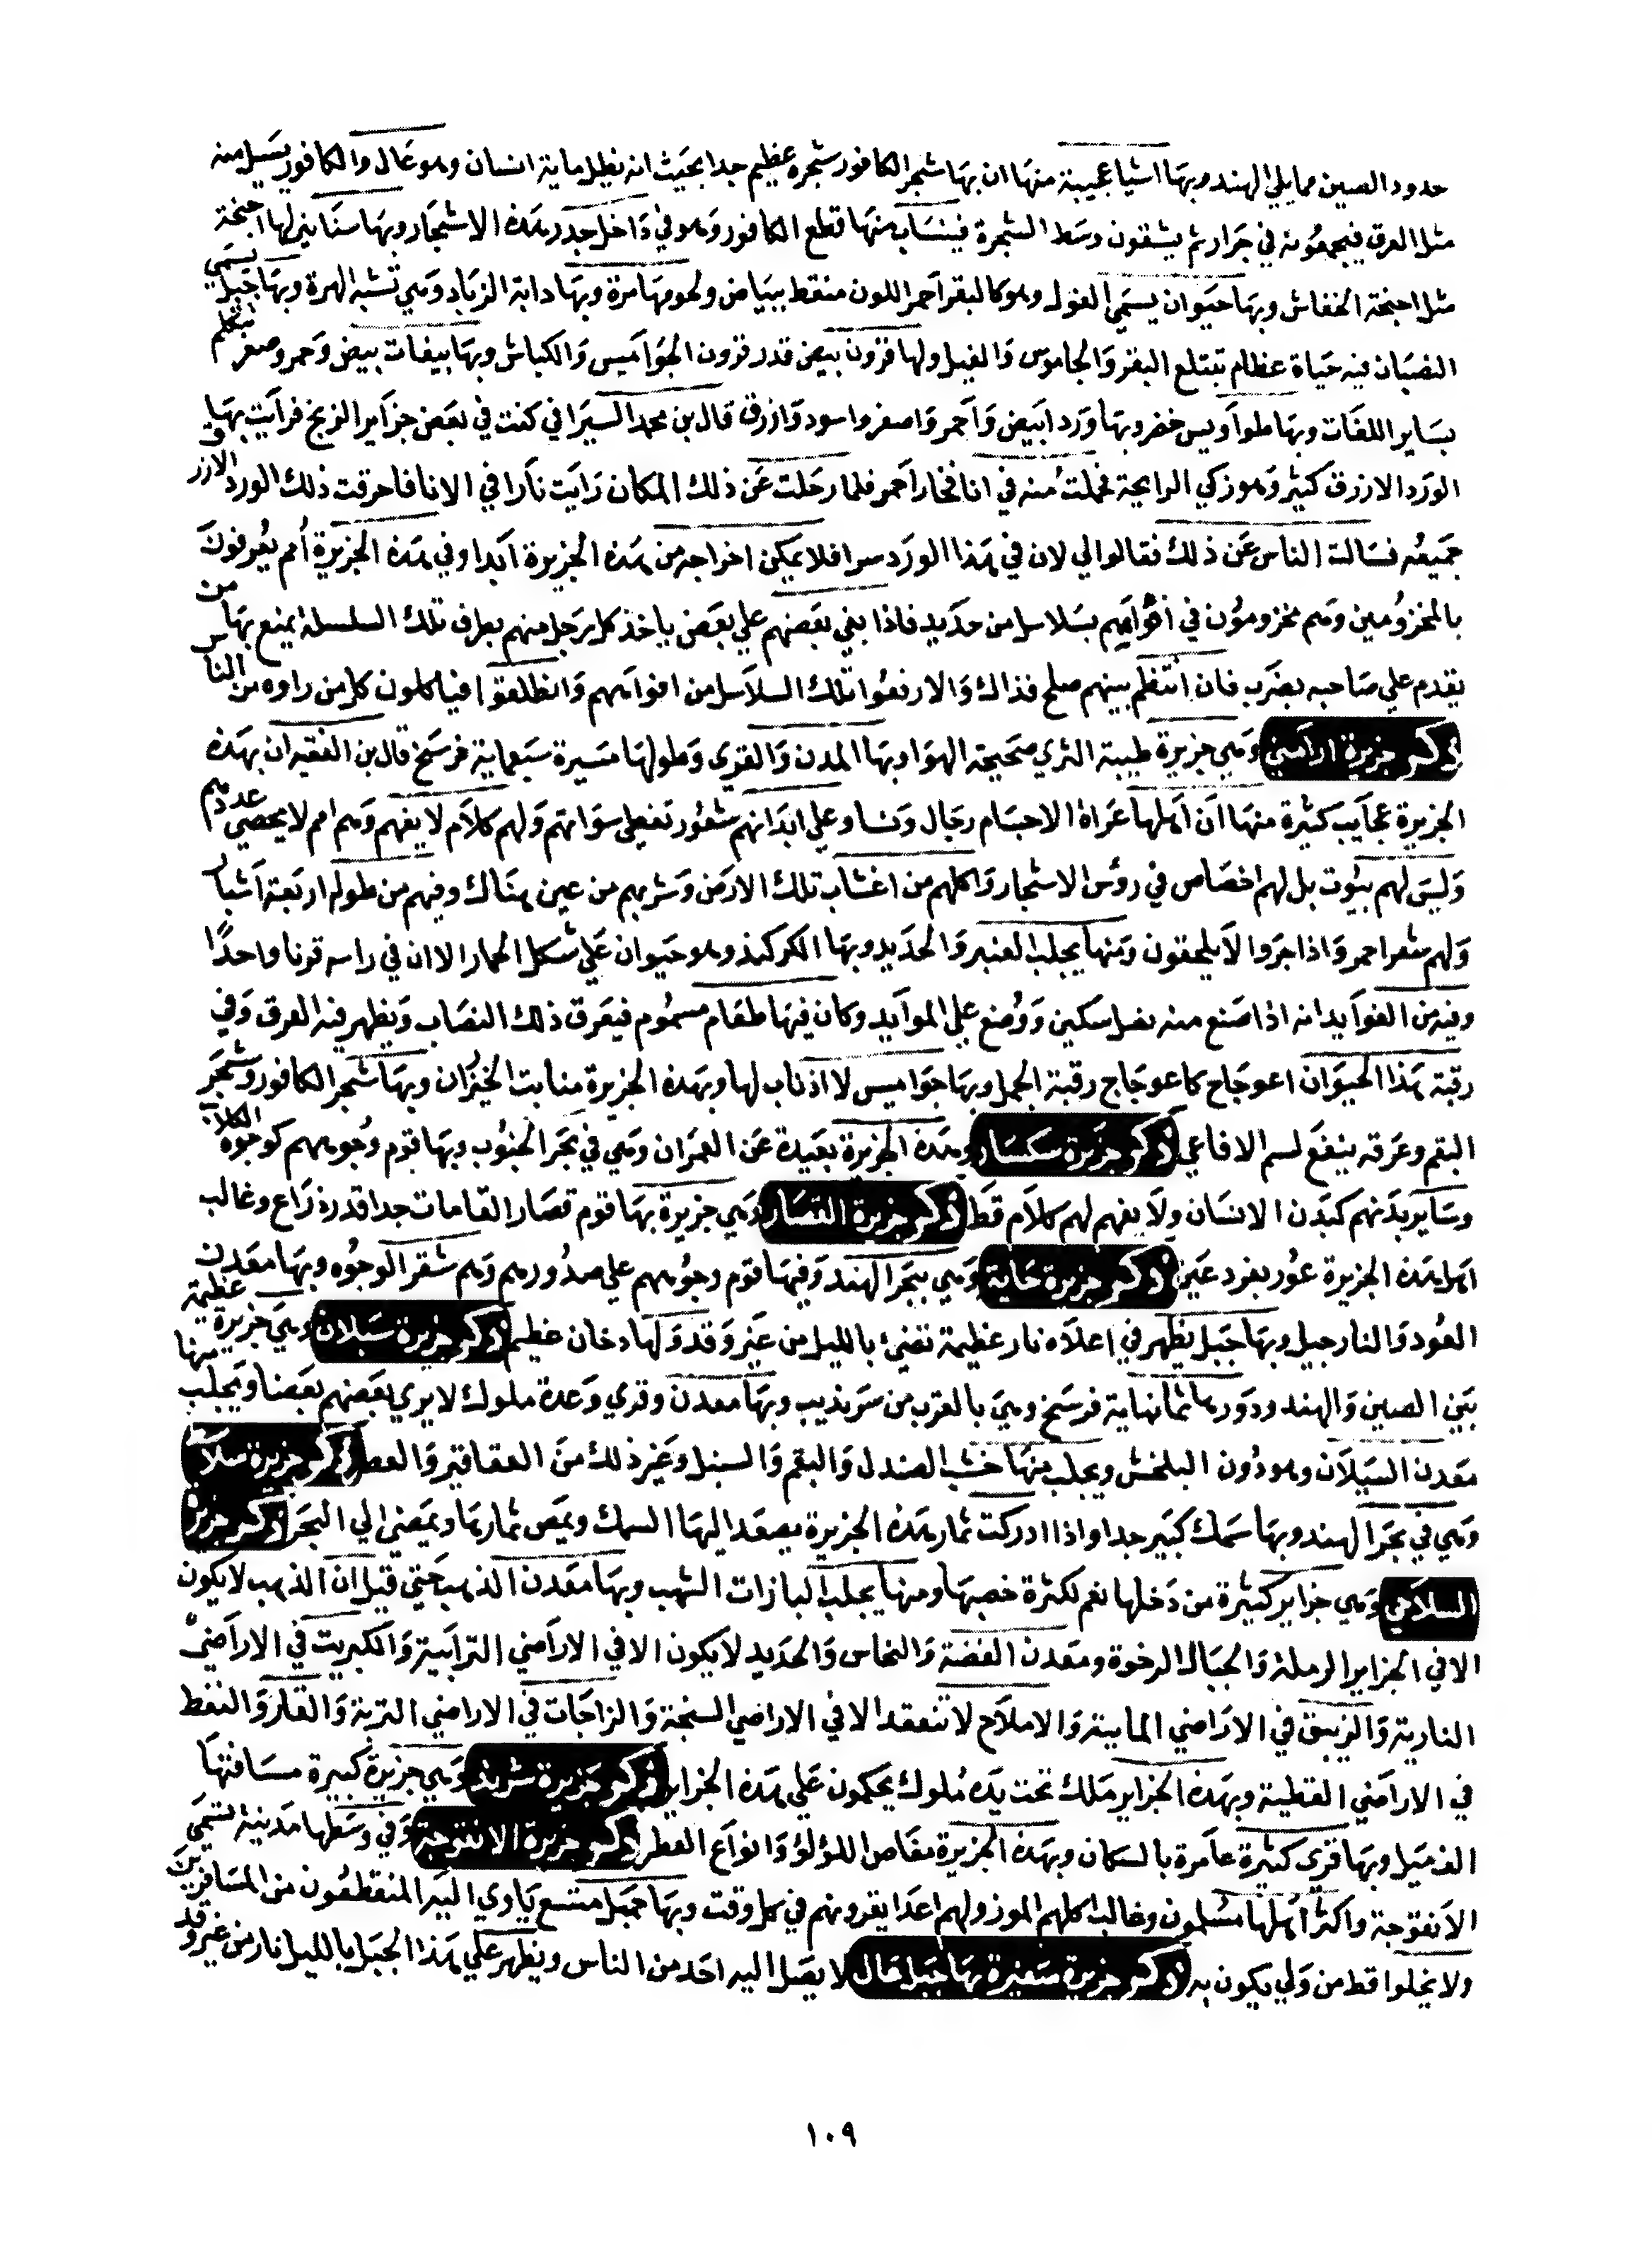 حدود الصين مما يلي الهند وبها اشيا عجيبة منها ان بها شجر الكافور شجره عظيم جدا بحيث انه يظل ماية انسان وهو عال والكافور يسيل منه
مثل العرق فيجمعونه في جرار ثم يشقون وسط الشجرة فينساب منها قطع الكافور وهو في داخل جدر هذه الاشجار وبها سنانير لها اجنحة
مثل اجنحة الخفاش وبها حيوان يسمي الغول وهو كالبقر احمر اللون منقط ببياض ولحومها مرة وبها دابة الزباد وهي تشبه الهرة وبها جبل يسمي
النصبان فيه حياة عظام تبتلع البقر والجاموس والفيل ولها قرون بيض قدر قرون الجواميس والكباش وبها ببغات بيض وحمر وصفر تتكلم
بساير اللغات وبها طواويس خضر وبها ورد ابيض واحمر واصفر واسود وازرق قال بن محمد السيرافي كنت في بعض جزاير الزبج فرايت بها
الورد الازرق كثير وهو زكي الرايحة فحملت منه في انا فخار احمر فلما رحلت عن ذلك المكان رايت نارا في الانا فاحرقت ذلك الورد الازرق
جميعه فسالت الناس عن ذلك فقالوا لي لان في هذا الورد سرا فلا يمكن اخراجه من هذه الجزيرة ابدا وفي هذه الجزيرة امم يعرفون
بالمخزومين وهم مخزومون في افواههم بسلاسل من حديد فاذا بغي بعضهم علي بعض ياخذ كل رجل منهم بطرف تلك السلسلة يمنع بها من
يقدم علي صاحبه بضرب فان انتظم بينهم صلح فذاك والا رفعوا تلك السلاسل من افواههم وانطلقوا فياكلون كل من راوه من الناس
ذكر جزيرة اراميني وهي جزيرة طيبة الثري صحيحة الهوا وبها المدن والقري وطولها مسيرة سبعماية فرسخ قال بن الفقيه ان بهذه
الجزيرة عجايب كثيرة منها ان اهلها عراة الاجسام رجال ونسا وعلي ابدانهم شعور تغطي سواتهم ولهم كلام لا يفهم وهم امم لا يحصي عددهم
وليس لهم بيوت بل لهم اخصاص في روس الاشجار واكلهم من اعشاب تلك الارض وشربهم من عين هناك وفيهم من طوله اربعة اشبار
ولهم شعر احمر واذا جروا لا يلحقون ومنها يجلب العنبر والحديد وبها الكركند وهو حيوان علي شكل الحمار الا ان في راسه قرنا واحدا
وفيه من الفوايد انه اذا صنع منه نصل سكين ووضع علي الموايد وكان فيها طعام مسموم فيعرق ذلك النصاب ويظهر فيه العرق وفي
رقبة هذا الحيوان اعوجاج كاعوجاج رقبة الجمل وبها جواميس لا اذناب لها وبهذه الجزيرة منابت الخيزران وبها شجر الكافور وشجر
البقم وعرقه ينفع لسم الافاعي ذكر جزيرة سكسار وهذه الجزيرة بعيدة عن العمران وهي في بحر الجنوب وبها قوم وجوههم كوجوه الكلاب
وساير بدنهم كبدن الانسان ولا يفهم لهم كلام قط ذكر جزيرة القسار وهي جزيرة بها قوم قصار القامات جدا قدر ذراع وغالب
اهل هذه الجزيرة عور بفرد عين ذكر جزيرة جابة وهي ببحر الهند وفيها قوم وجوههم علي صدورهم وهم شقر الوجوه وبها معدن
العود والنارجيل وبها جبل يظهر في اعلاه نار عظيمة تضئ بالليل من غير وقد ولها دخان عظيم ذكر جزيرة سيلان وهي جزيرة عظيمة
بين الصين والهند ودورها ثمانماية فرسخ وهي بالقرب من سرنديب وبها معدن وقري وعدة ملوك لا يري بعضهم بعضا ويجلب منها
معدن السيلان وهو دون البلخش ويجلب منها خشب الصندل والبقم والسنبل وغير ذلك من العقاقير والعطر ذكر جزيرة سلامت
وهي في بحر الهند وبها سمك كبير جدا واذا ادركت ثمار هذه الجزيرة يصعد اليها السمك ويمص ثمارها ويمضي الي البحر ذكر جزيرة
السلاهي وهي جزاير كثيرة من دخلها نعم لكثرة خصبها ومنها يجلب البازات الشهب وبها معدن الذهب حتي قيل ان الذهب لا يكون
الا في الجزاير الرملة والجبال الرخوة ومعدن الفضة والنحاس والحديد لا يكون الا في الاراضي الترابية والكبريت في الاراضي
النارية والزيبق في الاراضي المايية والاملاح لا تنعقد الا في الاراضي السبخة والزاجات في الاراضي التربة والقار والنفط
في الاراضي القطية وبهذه الجزاير ملك تحت يده ملوك يحكمون علي هذه الجزاير ذكر جزيرة سرند وهي جزيرة كبيرة مسافتها
الف ميل وبها قري كثيرة عامرة بالسكان وبهذه الجزيرة مغاص اللؤلؤ وانواع العطر ذكر جزيرة الانفوجة وفي وسطها مدينة تسمي
الانفوجة واكثر اهلها مسلمون وغالب اكلهم الموز ولهم اعدا يقرونهم في كل وقت وبها جبل متسع ياوي اليه المنقطعون من المسافرين
ولا يخلوا قط من ولي يكون به ذكر جزيرة صغيرة بها جبل عال لا يصل اليه احد من الناس ويظهر علي هذا الجبل بالليل نار من غير وقد
١٠٩